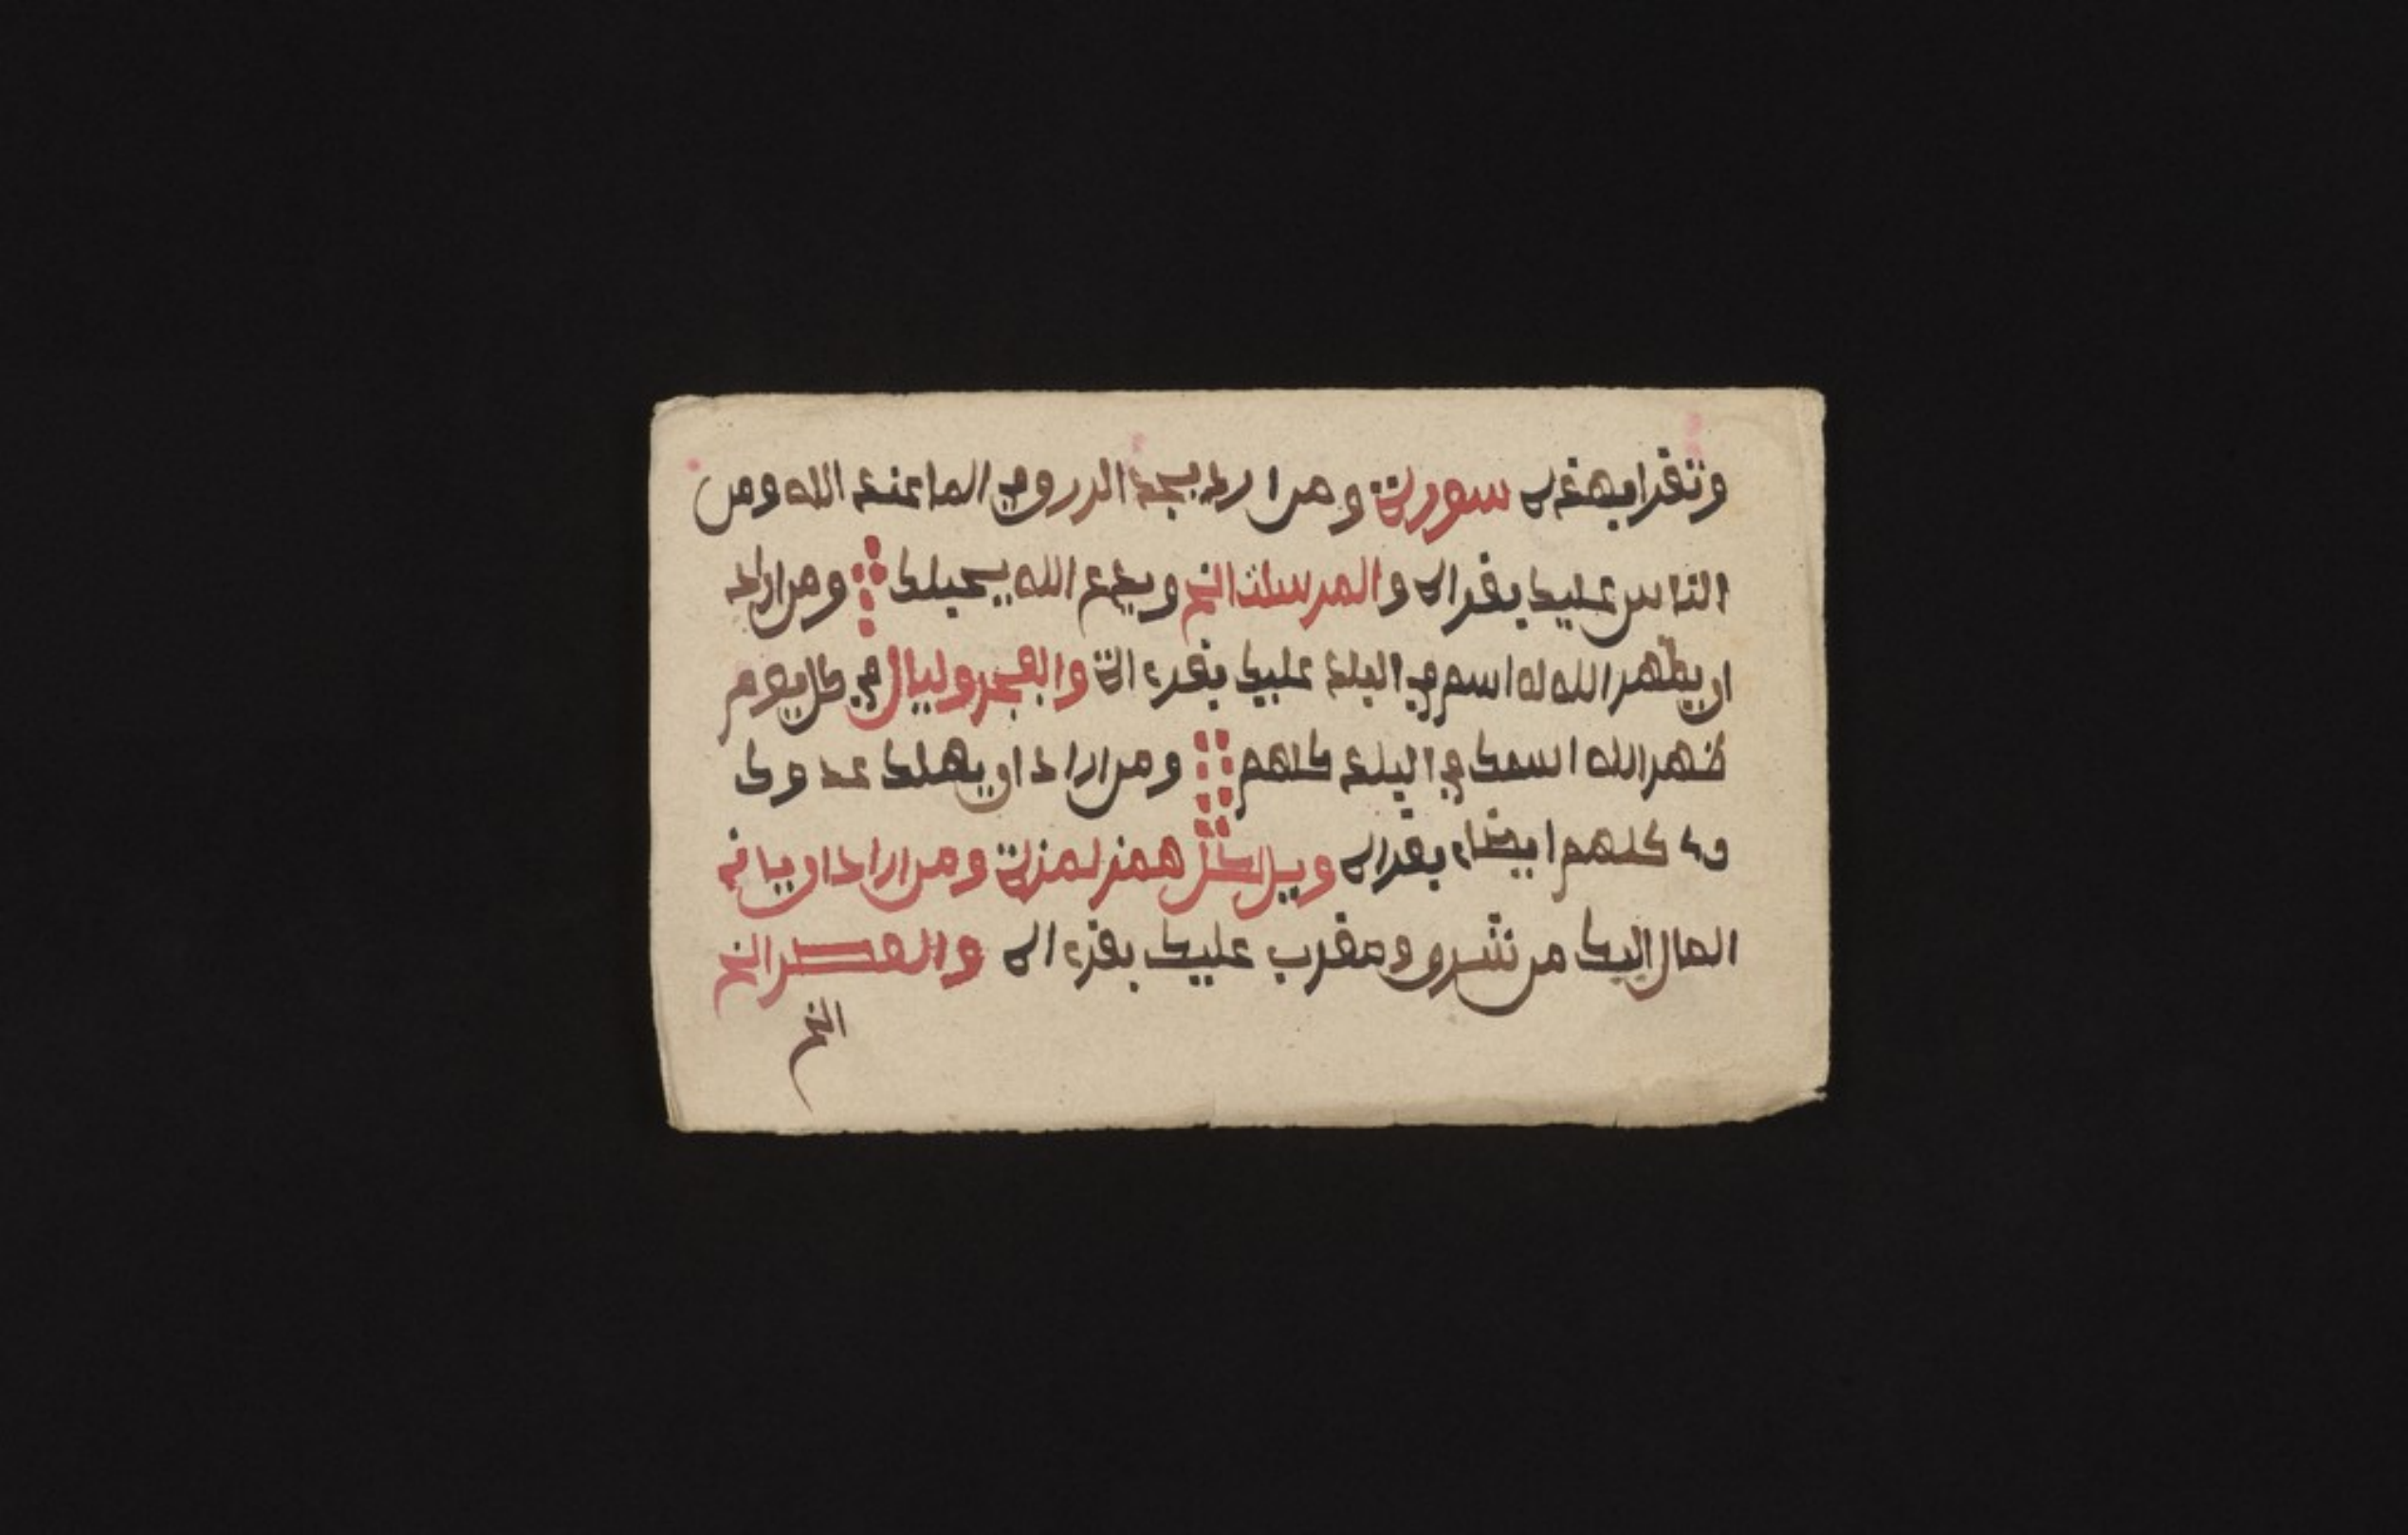 وتقرا بهذه سورة ومن ارد يجد الدر روفي الما عند الله ومن
الناس عليك بقراه والمرسلت الخ ويدع الله يحبلك ومن اراد
ان يظهر الله له اسم في البلد عليك بقرءاة والفجر وليال في كل يوم
ظهر الله اسمك في البلد كلهم ومن اراد ان يهلك عدوك
كلهم ايضا بقراه ويل لكل همزلمزة ومن اراد ان ياتي
المال اليك من شرو ومقرب عليك بقرءاه والعصر الخ
الخ